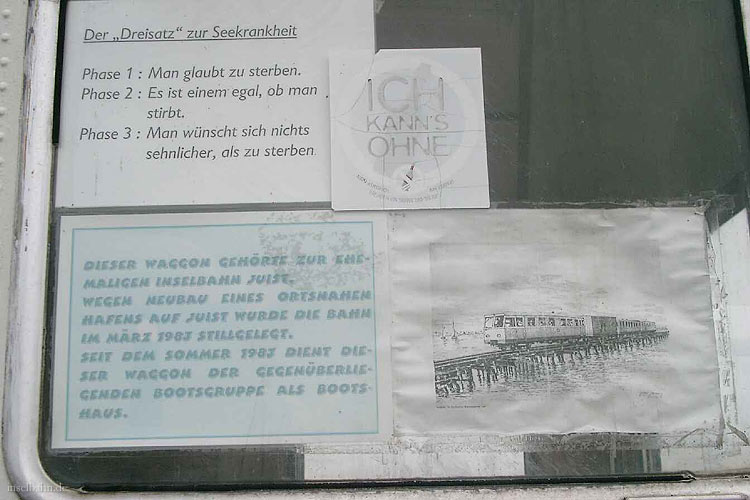 Der „Dreisatz“ zur Seekrankheit
Phase 1 : Man glaubt zu sterben.
Phase 2 : Es ist einem egal, ob man
stirbt.
Phase 3 : Man wünscht sich nichts
sehnlicher, als zu sterben
ICH
KANN'S
OHNE
DIESER WAGGON GEHÖRTE ZUR EHE-
MALIGEN INSELBAHN JUIST.
WEGEN NEUBAU EINES ORTSNAHEN
HAFENS AUF JUIST WURDE DIE BAHN
IM MÄRZ 1983 STILLGELEGT.
SEIT DEM SOMMER 1983 DIENT DIE-
SER WAGGON DER GEGENÜBERLIE-
GENDEN BOOTSGRUPPE ALS BOOTS-
HAUS.